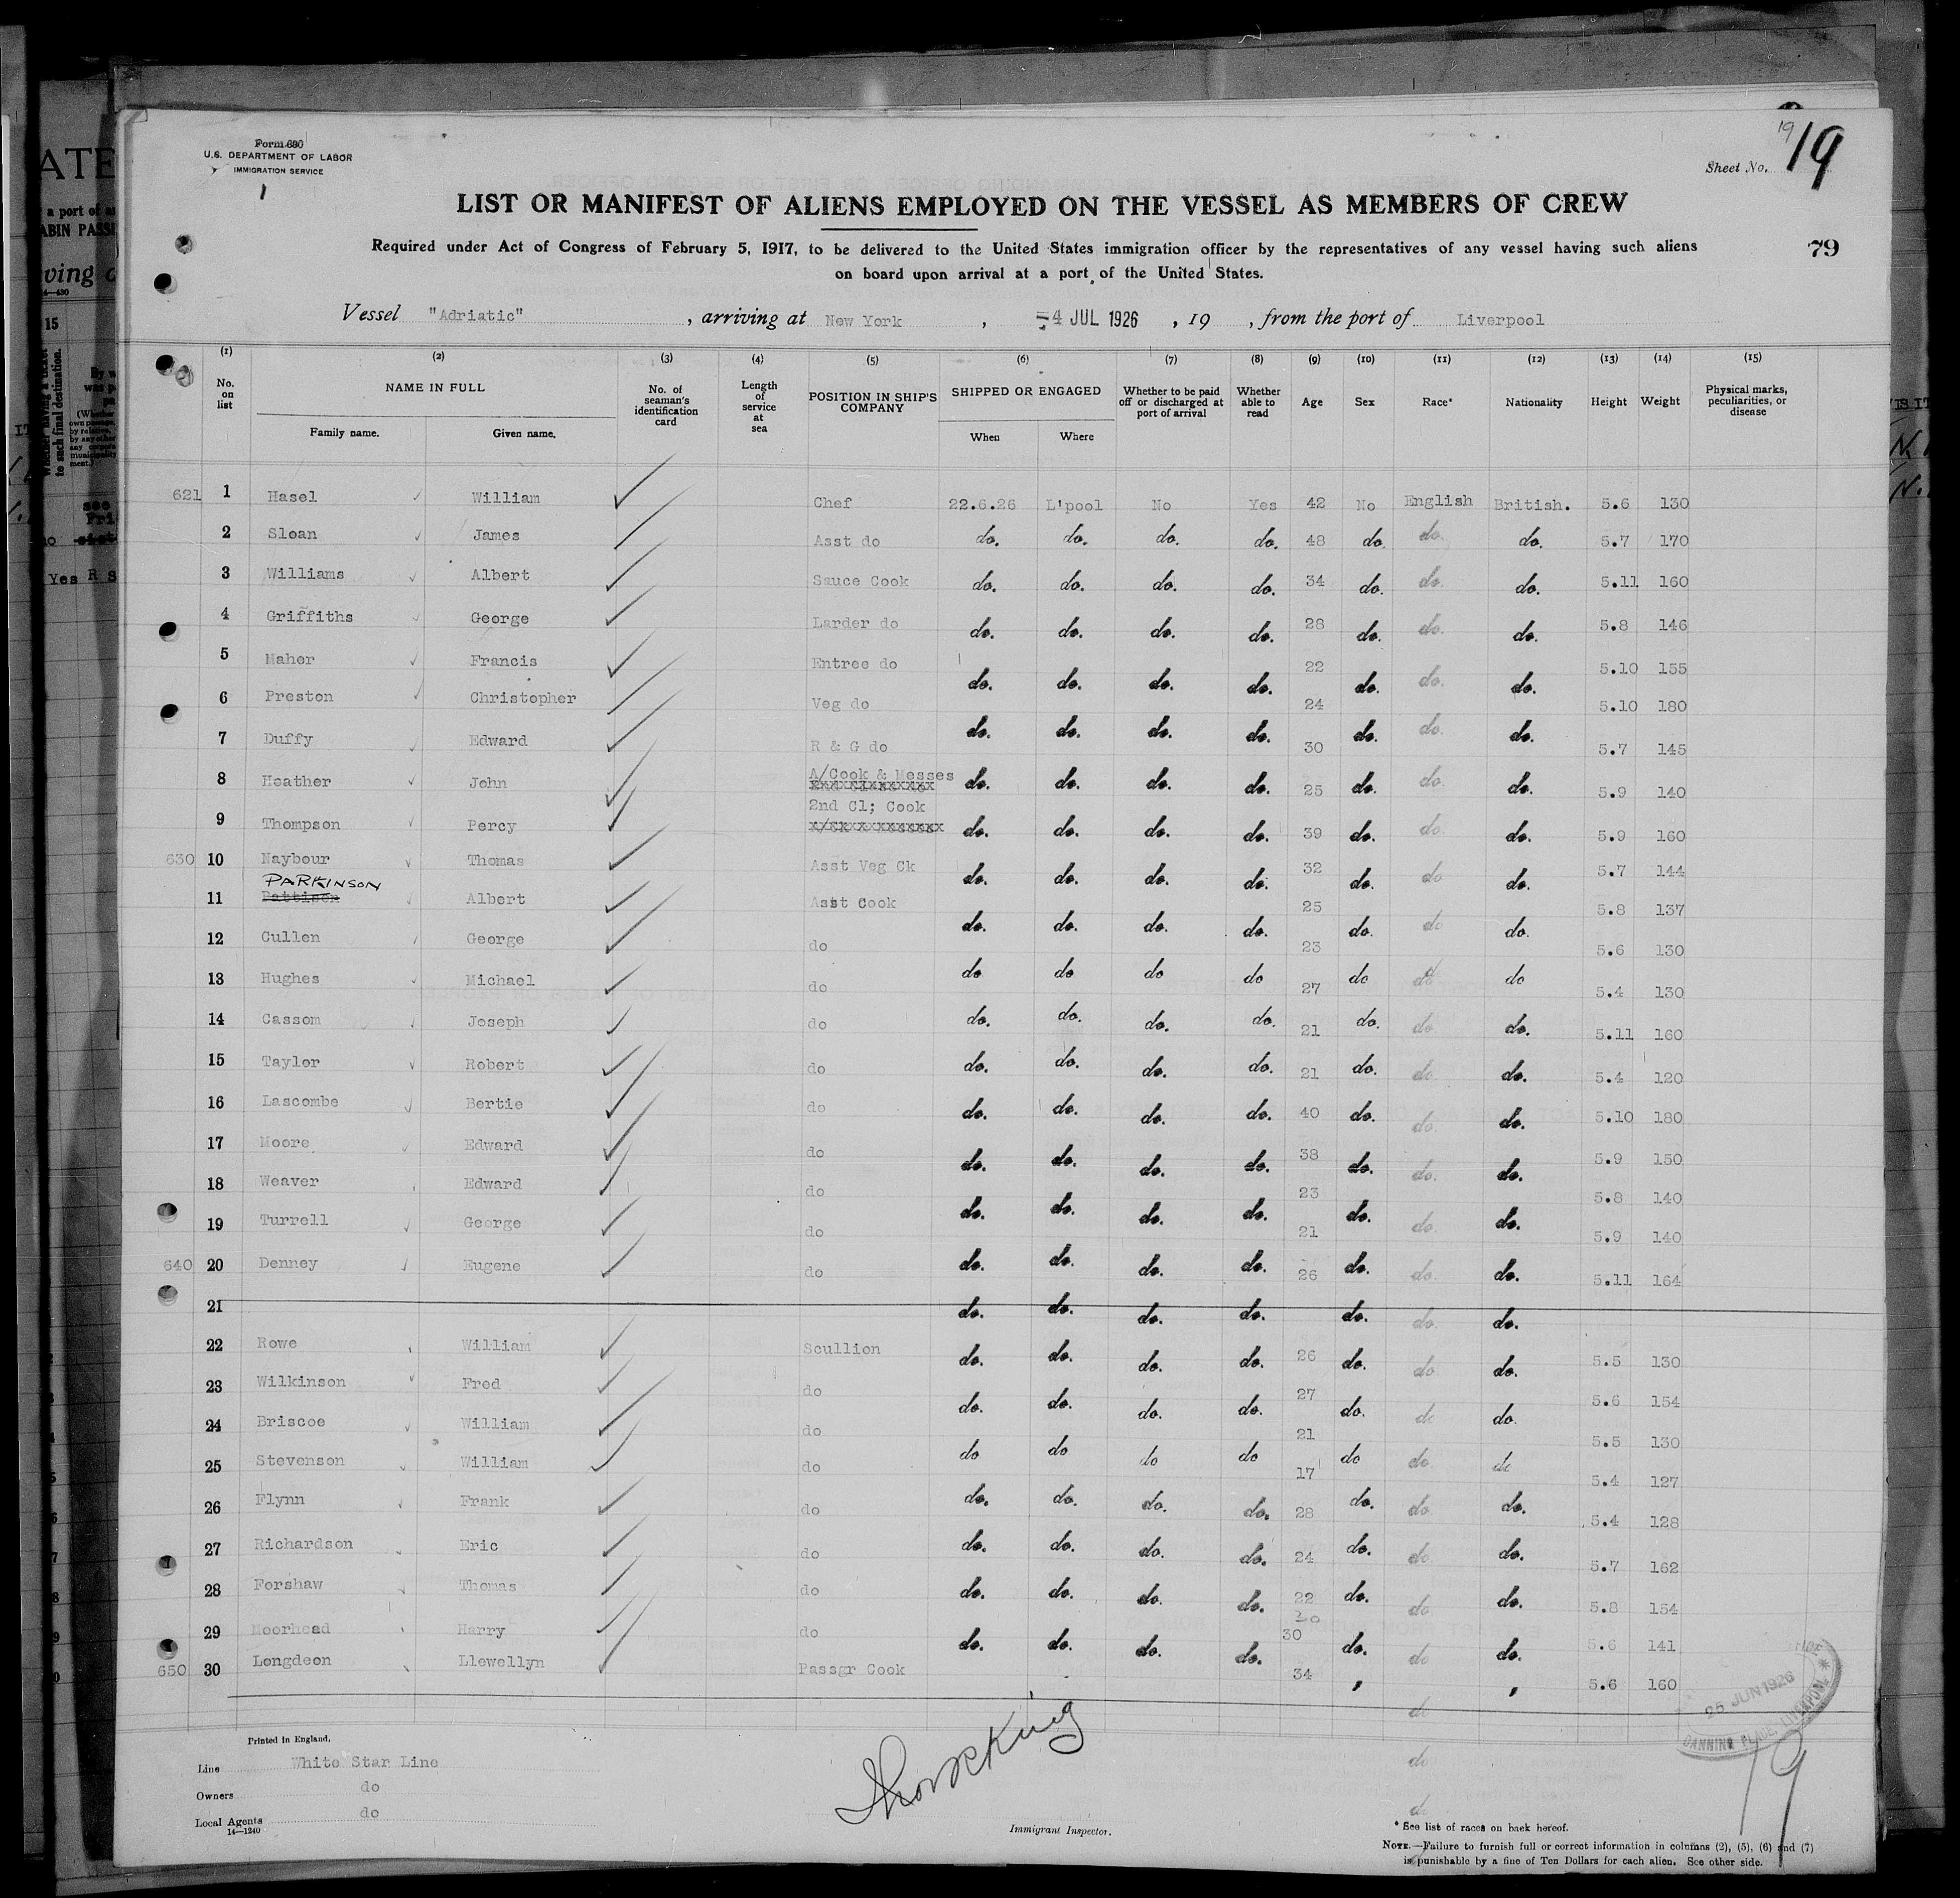 Form 680
U.S. DEPARTMENT OF LABOR
IMMIGRATION SERVICE
1
Sheet No. 19
19
LIST OR MANIFEST OF ALIENS EMPLOYED ON THE VESSEL AS MEMBERS OF CREW
Required under Act of Congress of February 5, 1917, to be delivered to the United States immigration officer by the representatives of any vessel having such aliens
on board upon arrival at a port of the United States.
79
Vessel "Adriatic" , arriving at New York , -4 JUL 1926 , 19 , from the port of Liverpool
(1) (2) (3) (4) (5) (6) (7) (8) (9) (10) (11) (12) (13) (14) (15)
No. on list NAME IN FULL Family name. Given name. No. of seaman's identification card Length of service at sea POSITION IN SHIP'S COMPANY SHIPPED OR ENGAGED When Where Whether to be paid off or discharged at port of arrival Whether able to read Age Sex Race* Nationality Height Weight Physical marks, peculiarities, or disease
621 1 Hasel William Chef 22.6.26 L'pool No Yes 42 No English British. 5.6 130
2 Sloan James Asst do do. do. do. do. 48 do. do. do. 5.7 170
3 Williams Albert Sauce Cook do. do. do. do. 34 do. do. do. 5.11 160
4 Griffiths George Larder do do. do. do. do. 28 do. do. do. 5.8 146
5 Maher Francis Entree do do. do. do. do. 22 do. do. do. 5.10 155
6 Preston Christopher Veg do do. do. do. do. 24 do. do. do. 5.10 180
7 Duffy Edward R & G do do. do. do. do. 30 do. do. do. 5.7 145
8 Heather John A/Cook & Messes do. do. do. do. 25 do. do. do. 5.9 140
9 Thompson Percy 2nd Cl; Cook do. do. do. do. 39 do. do. do. 5.9 160
630 10 Naybour Thomas Asst Veg Ck do. do. do. do. 32 do. do do. 5.7 144
PARKINSON
11 Pattison Albert Asst Cook do. do. do. do. 25 do. do do. 5.8 137
12 Cullen George do do do do do 23 do do do 5.6 130
13 Hughes Michael do do. do. do. do. 27 do. do do. 5.4 130
14 Cassom Joseph do do. do. do. do. 21 do. do do. 5.11 160
15 Taylor Robert do do. do. do. do. 21 do. do. do. 5.4 120
16 Lascombe Bertie do do. do. do. do. 40 do. do. do. 5.10 180
17 Moore Edward do do. do. do. do. 38 do. do. do. 5.9 150
18 Weaver Edward do do. do. do. do. 23 do. do. do. 5.8 140
19 Turrell George do do. do. do. do. 21 do. do. do. 5.9 140
640 20 Denney Eugene do do. do. do. do. 26 do. do. do. 5.11 164
21 do. do. do. do. do. do. do.
22 Rowe William Scullion do. do. do. do. 26 do. do do. 5.5 130
23 Wilkinson Fred do do. do. do. do. 27 do. do do. 5.6 154
24 Briscoe William do do do do do 21 do do. do 5.5 130
25 Stevenson William do do. do. do. do. 17 do. do. do. 5.4 127
26 Flynn Frank do do. do. do. do. 28 do. do. do. 5.4 128
27 Richardson Eric do do. do. do. do. 24 do. do. do. 5.7 162
28 Forshaw Thomas do do. do. do. do. 22 do. do do. 5.8 154
29 Moorhead Harry do do. do. do. do. 30 do. do do. 5.6 141
650 30 Longdeon Llewellyn Passgr Cook 34 do 5.6 160
25 JUN 1926
CANNING PLACE, LIVERPOOL
Printed in England.
Line White Star Line
Owners do
Local Agents do
14—1240
Immigrant Inspector.
do
do
19
* See list of races on back hereof.
NOTE.—Failure to furnish full or correct information in columns (2), (5), (6) and (7)
is punishable by a fine of Ten Dollars for each alien. See other side.